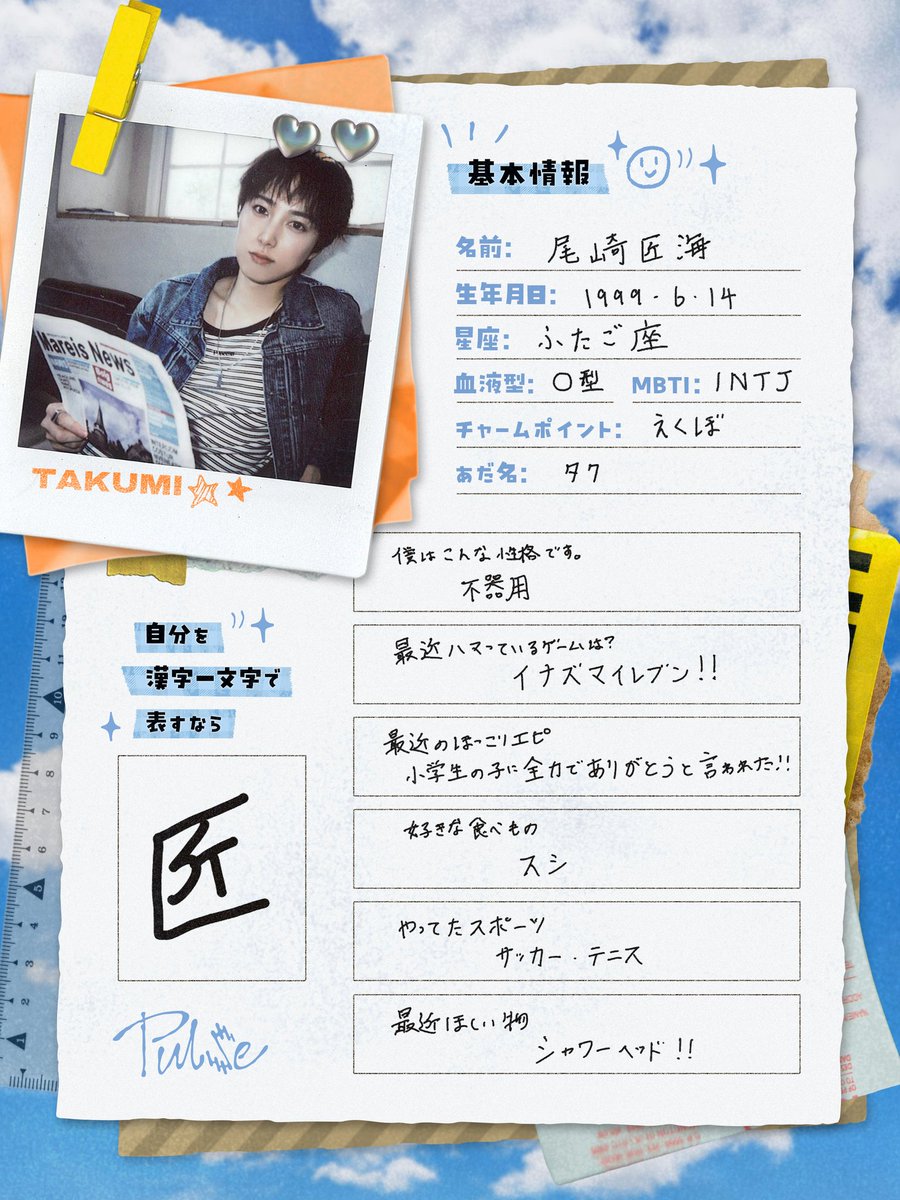 Mareis News
TAKUMI
基本情報
名前: 尾崎匠海
生年月日: 1999.6.14
星座: ふたご座
血液型: O型 MBTI: INTJ
チャームポイント: えくぼ
あだ名: タク
僕はこんな性格です。
不器用
最近ハマっているゲームは?
イナズマイレブン!!
最近のほっこりエピ
小学生の子に全力でありがとうと言われた!!
好きな食べもの
スシ
やってたスポーツ
サッカー・テニス
最近ほしい物
シャワーヘッド!!
自分を
漢字一文字で
表すなら
匠
Pulse